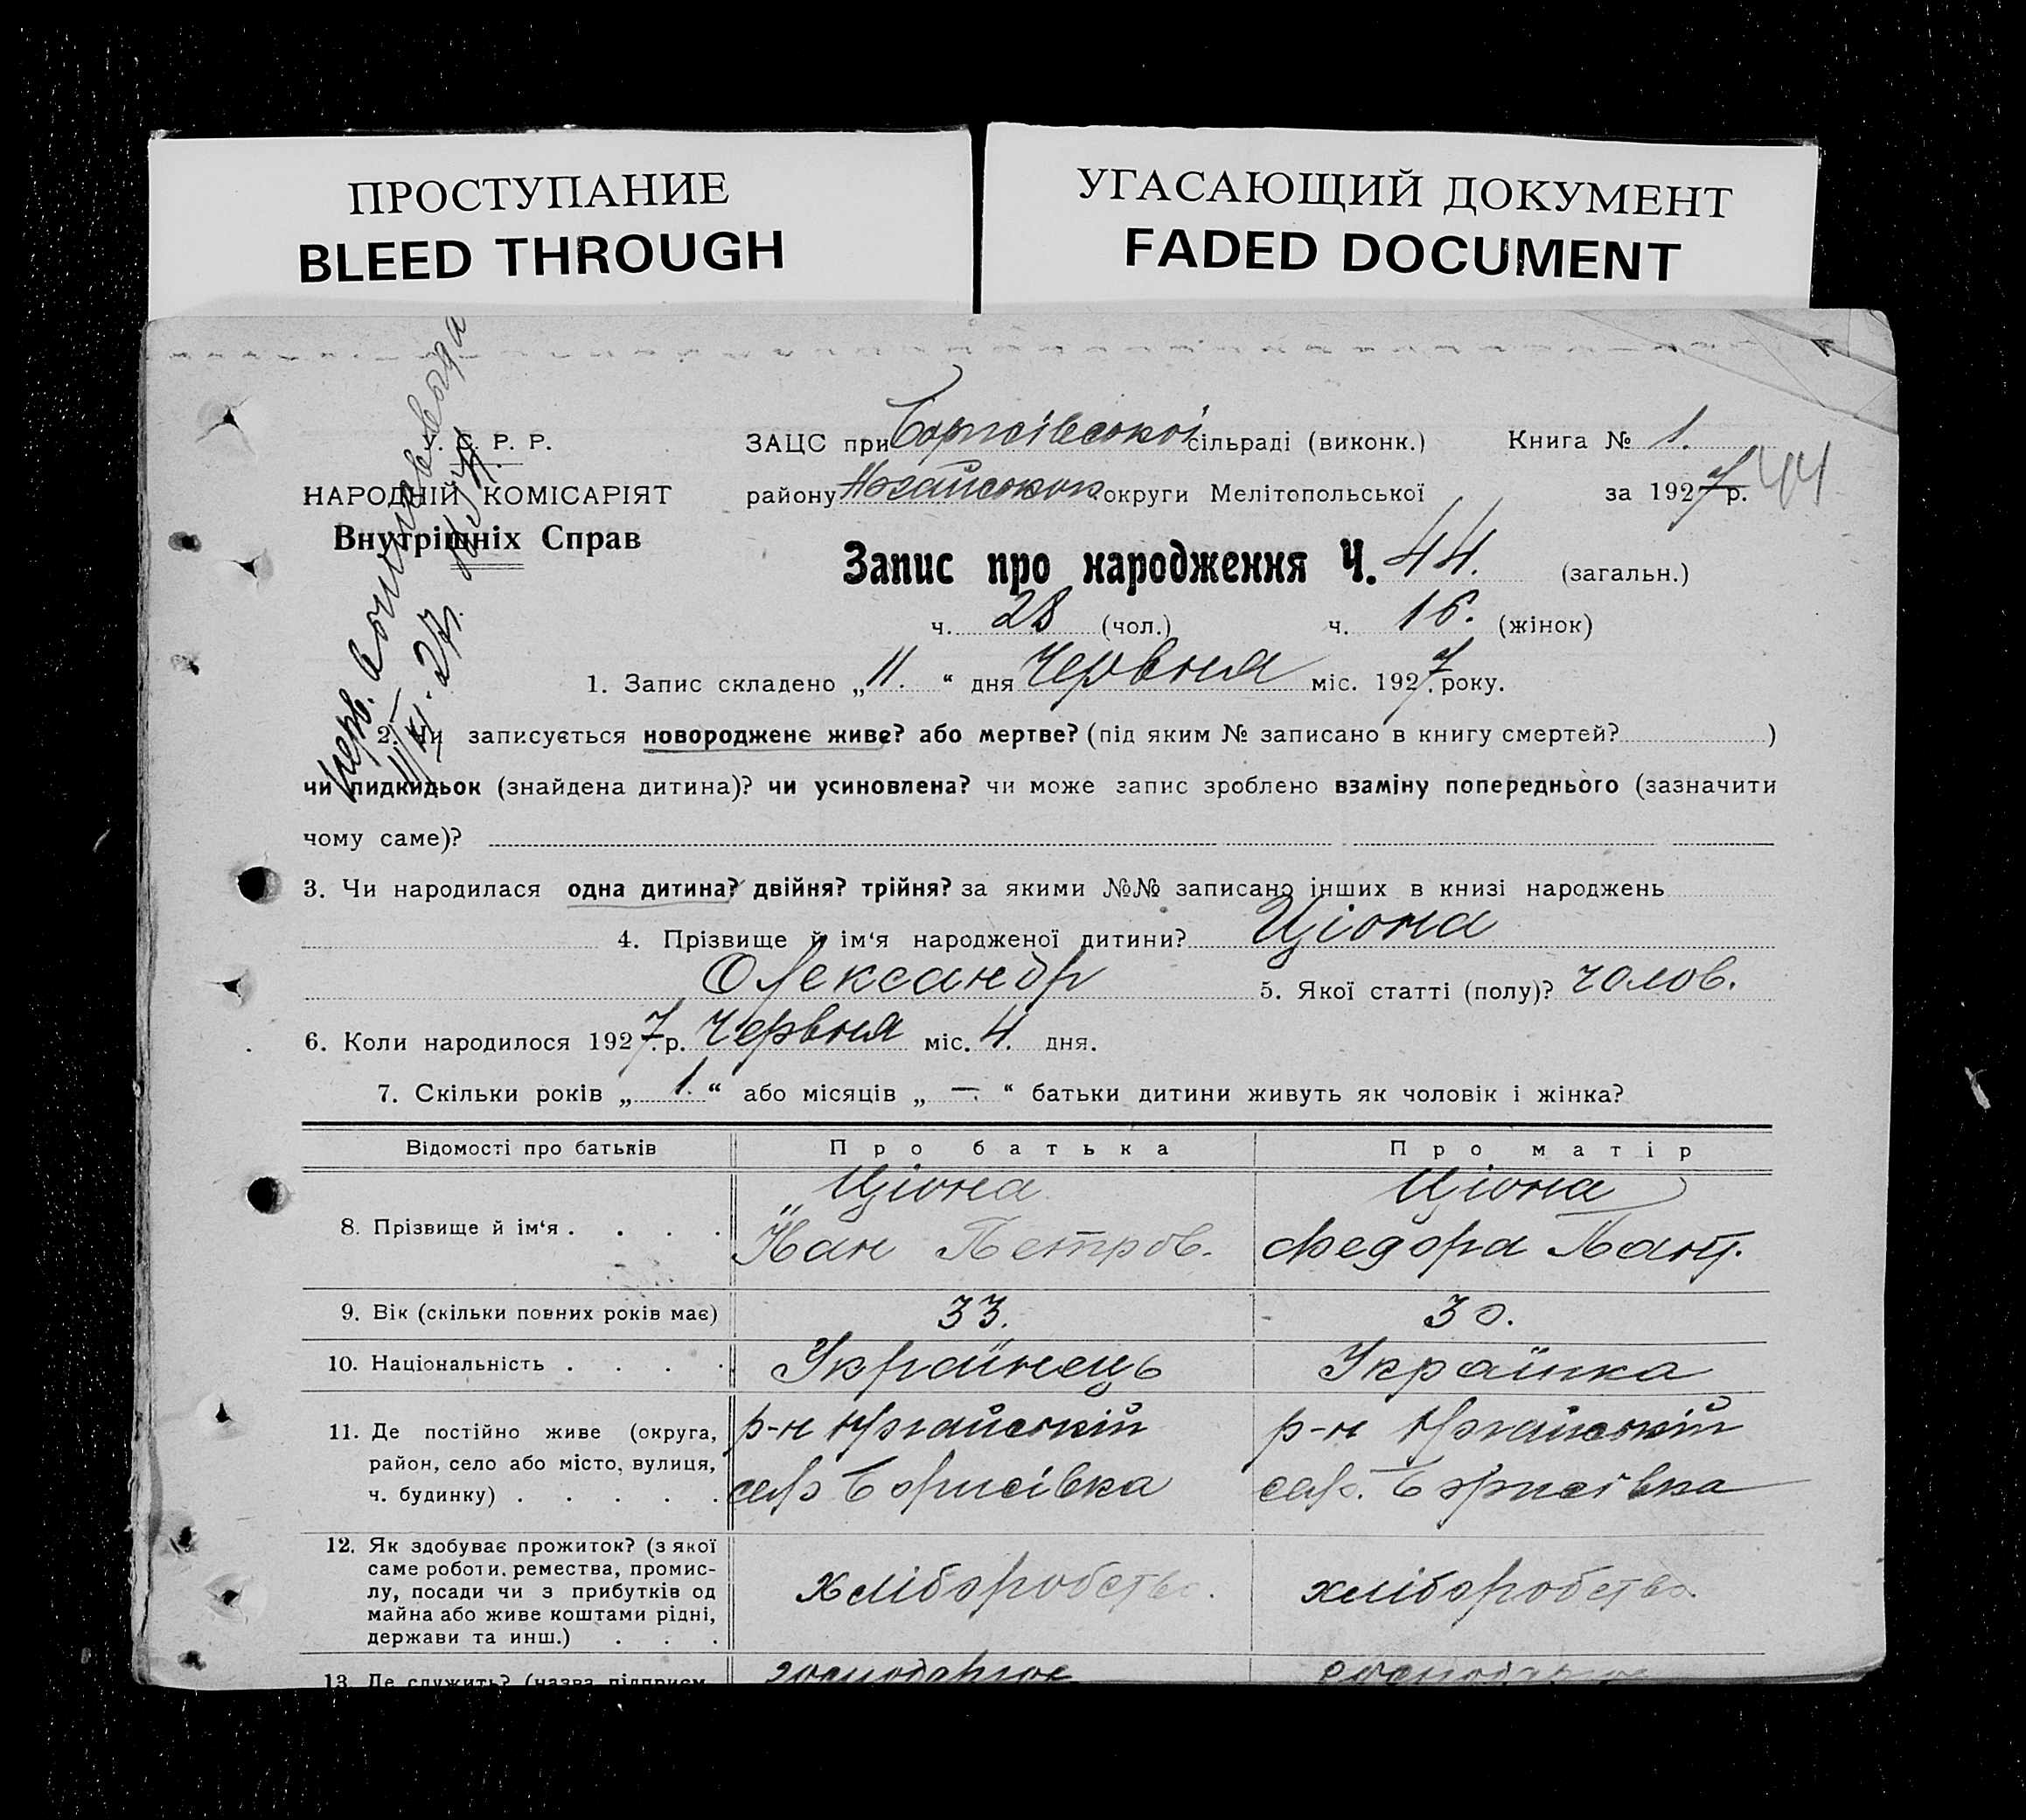 ПРОСТУПАНИЕ
BLEED THROUGH
УГАСАЮЩИЙ ДОКУМЕНТ
FADED DOCUMENT
У. С. Р. Р.
НАРОДНІЙ КОМІСАРІЯТ
Внутрішніх Справ
ЗАЦС при Борисівської сільраді (виконк.) Книга № 1.
району округи Мелітопольської за 1927 р. 44
Запис про народження Ч. 44. (загальн.)
ч. 28 (чол.) ч. 16. (жінок)
1. Запис складено „11.“ дня Червня міс. 1927. року.
2. Чи записується новороджене живе? або мертве? (під яким № записано в книгу смертей? )
чи підкидьок (знайдена дитина)? чи усиновлена? чи може запис зроблено взаміну попереднього (зазначити
чому саме)?
3. Чи народилася одна дитина? двійня? трійня? за якими №№ записано інших в книзі народжень
4. Прізвище й ім‘я народженої дитини? Ціона
Олександр 5. Якої статті (полу)? чолов.
6. Коли народилося 1927. р. Червня міс. 4. дня.
7. Скільки років „ 1. “ або місяців „ —. “ батьки дитини живуть як чоловік і жінка?
Відомості про батьків Про батька Про матір
8. Прізвище й ім‘я . . . . Ціона Ціона
Йван Петров. Федора Пант.
9. Вік (скільки повних років має) 33. 30.
10. Національність . . . . Українець Українка
11. Де постійно живе (округа, р-н р-н
район, село або місто, вулиця,
ч. будинку) . . . . . Борисівка Борисівка
12. Як здобуває прожиток? (з якої
саме роботи, ремества, промис-
лу, посади чи з прибутків од хліборобство. хліборобство.
майна або живе коштами рідні,
держави та инш.) . . .
13. Де служить? (назва підприєм.